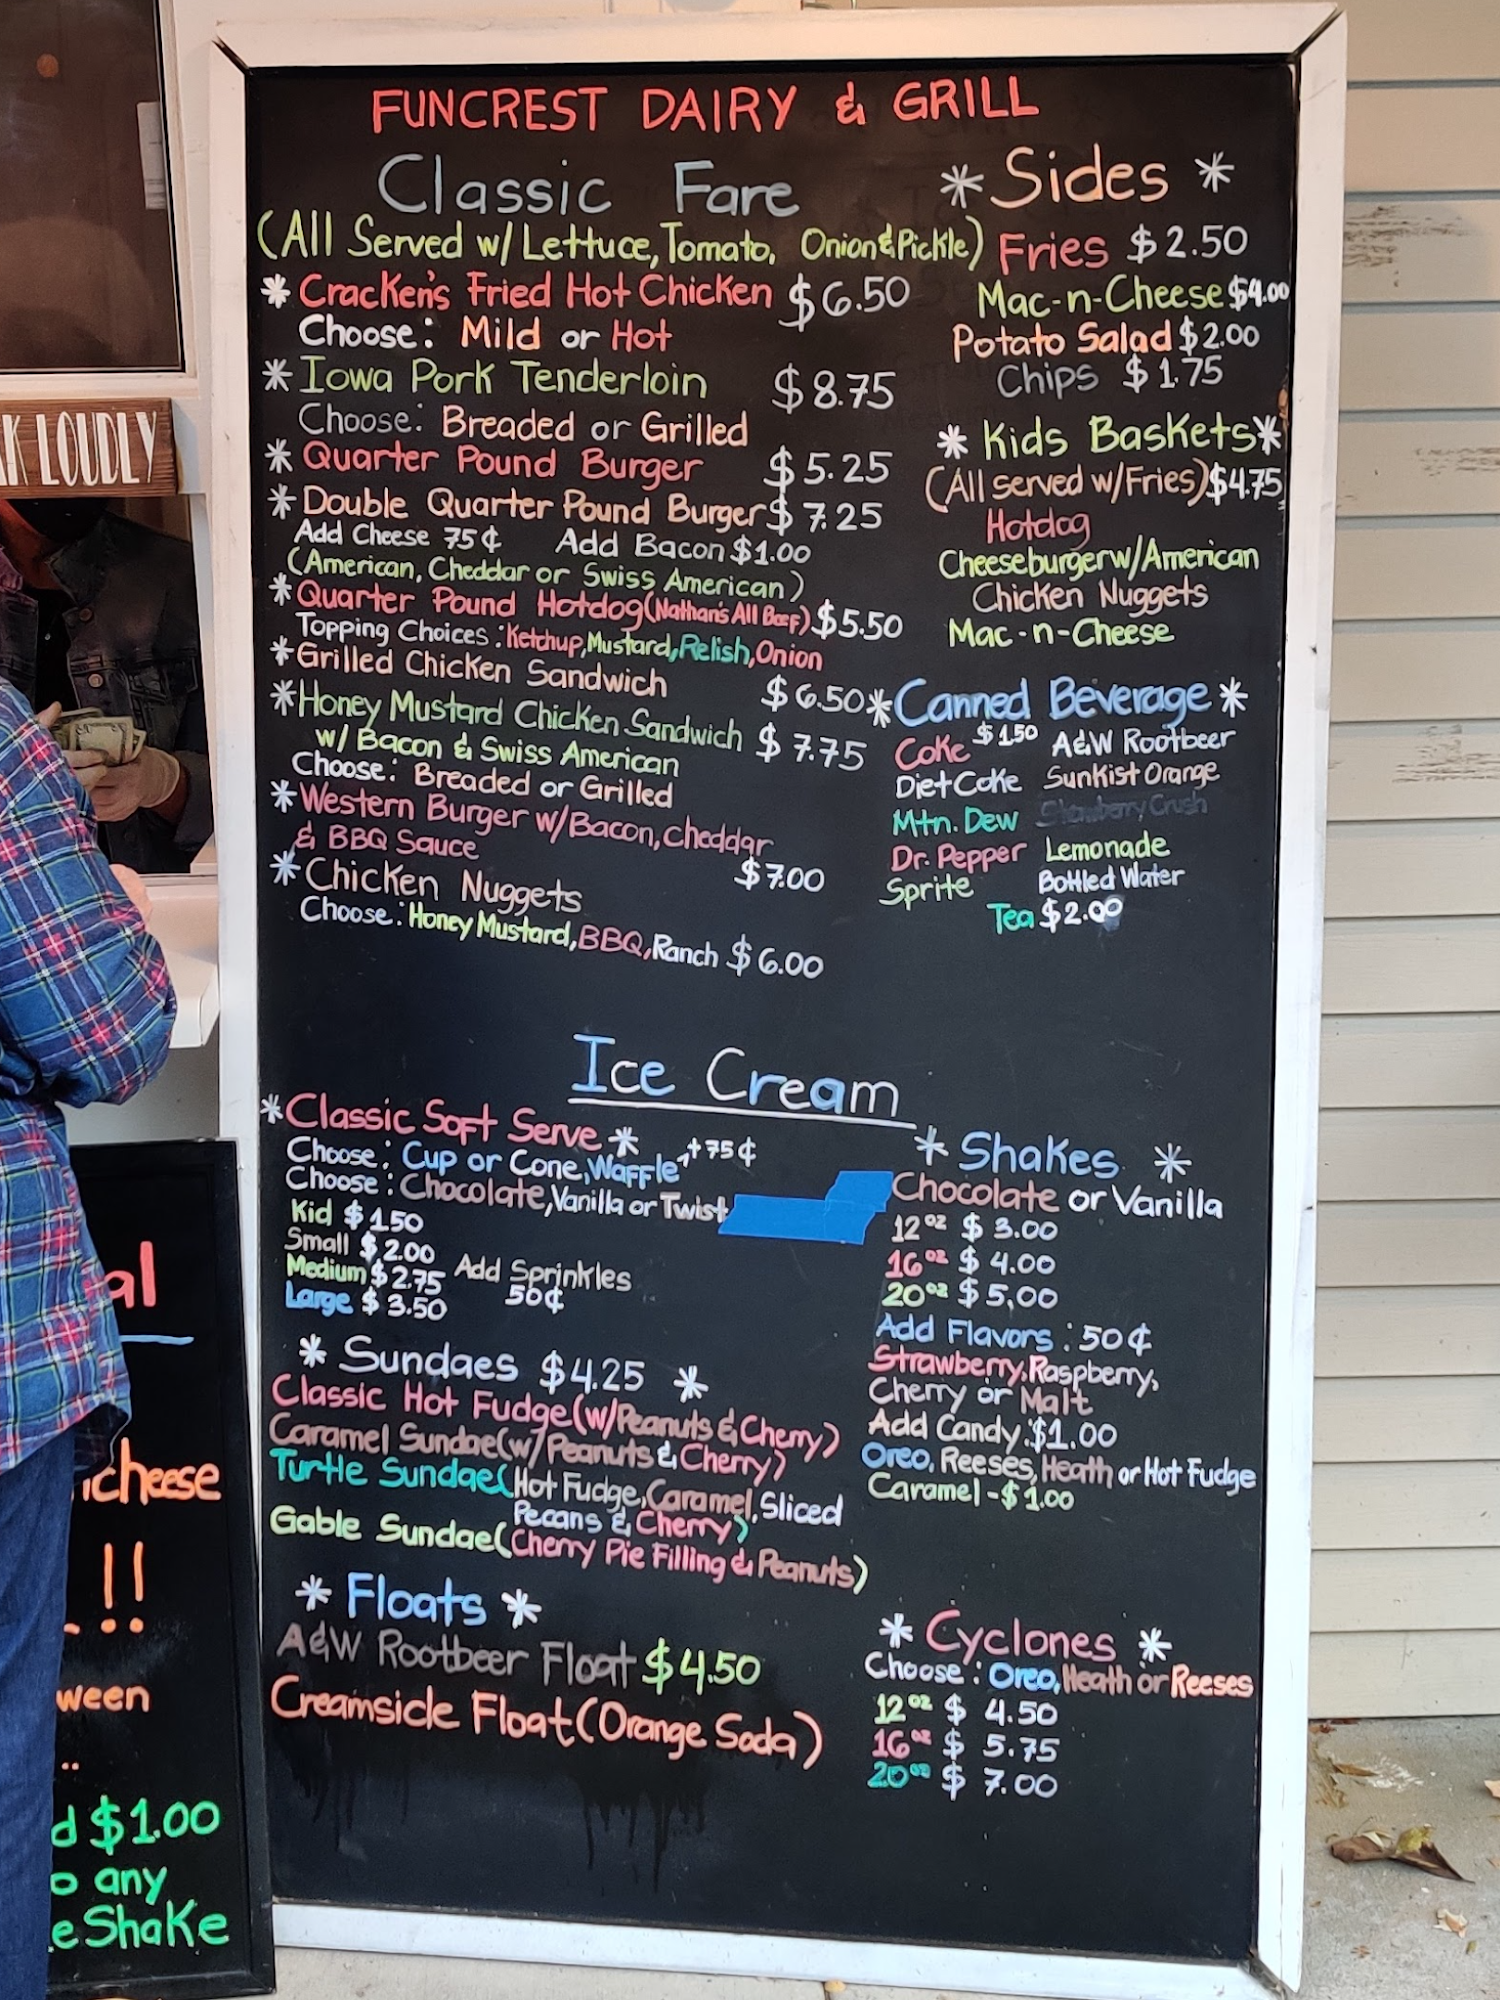 FUNCREST DAIRY & GRILL
Classic Fare
(All Served w/ Lettuce, Tomato, Onion & Pickle)
* Cracken's Fried Hot Chicken $6.50
Choose: Mild or Hot
* Iowa Pork Tenderloin $8.75
Choose: Breaded or Grilled
* Quarter Pound Burger $5.25
* Double Quarter Pound Burger $7.25
Add Cheese 75¢ Add Bacon $1.00
(American, Cheddar or Swiss American)
* Quarter Pound Hotdog (Nathan's All Beef) $5.50
Topping Choices: Ketchup, Mustard, Relish, Onion
* Grilled Chicken Sandwich $6.50
* Honey Mustard Chicken Sandwich $7.75
w/ Bacon & Swiss American
Choose: Breaded or Grilled
* Western Burger w/Bacon, Cheddar
& BBQ Sauce $7.00
* Chicken Nuggets
Choose: Honey Mustard, BBQ, Ranch $6.00
* Sides *
Fries $2.50
Mac-n-Cheese $4.00
Potato Salad $2.00
Chips $1.75
* Kids Baskets *
(All served w/Fries) $4.75
Hotdog
Cheeseburger w/American
Chicken Nuggets
Mac-n-Cheese
* Canned Beverage *
Coke $1.50 A&W Rootbeer
Diet Coke Sunkist Orange
Mtn. Dew Strawberry Crush
Dr. Pepper Lemonade
Sprite Bottled Water
Tea $2.00
Ice Cream
* Classic Soft Serve *
Choose: Cup or Cone, Waffle +75¢
Choose: Chocolate, Vanilla or Twist
Kid $1.50
Small $2.00
Medium $2.75 Add Sprinkles
Large $3.50 50¢
* Sundaes $4.25 *
Classic Hot Fudge (w/Peanuts & Cherry)
Caramel Sundae (w/Peanuts & Cherry)
Turtle Sundae (Hot Fudge, Caramel, Sliced
Pecans & Cherry)
Gable Sundae (Cherry Pie Filling & Peanuts)
* Floats *
A&W Rootbeer Float $4.50
Creamsicle Float (Orange Soda)
* Shakes *
Chocolate or Vanilla
12oz $3.00
16oz $4.00
20oz $5.00
Add Flavors: 50¢
Strawberry, Raspberry,
Cherry or Malt
Add Candy: $1.00
Oreo, Reeses, Heath or Hot Fudge
Caramel - $1.00
* Cyclones *
Choose: Oreo, Heath or Reeses
12oz $4.50
16oz $5.75
20oz $7.00
K LOUDLY
al
cheese
!!
ween
..
d $1.00
o any
e Shake